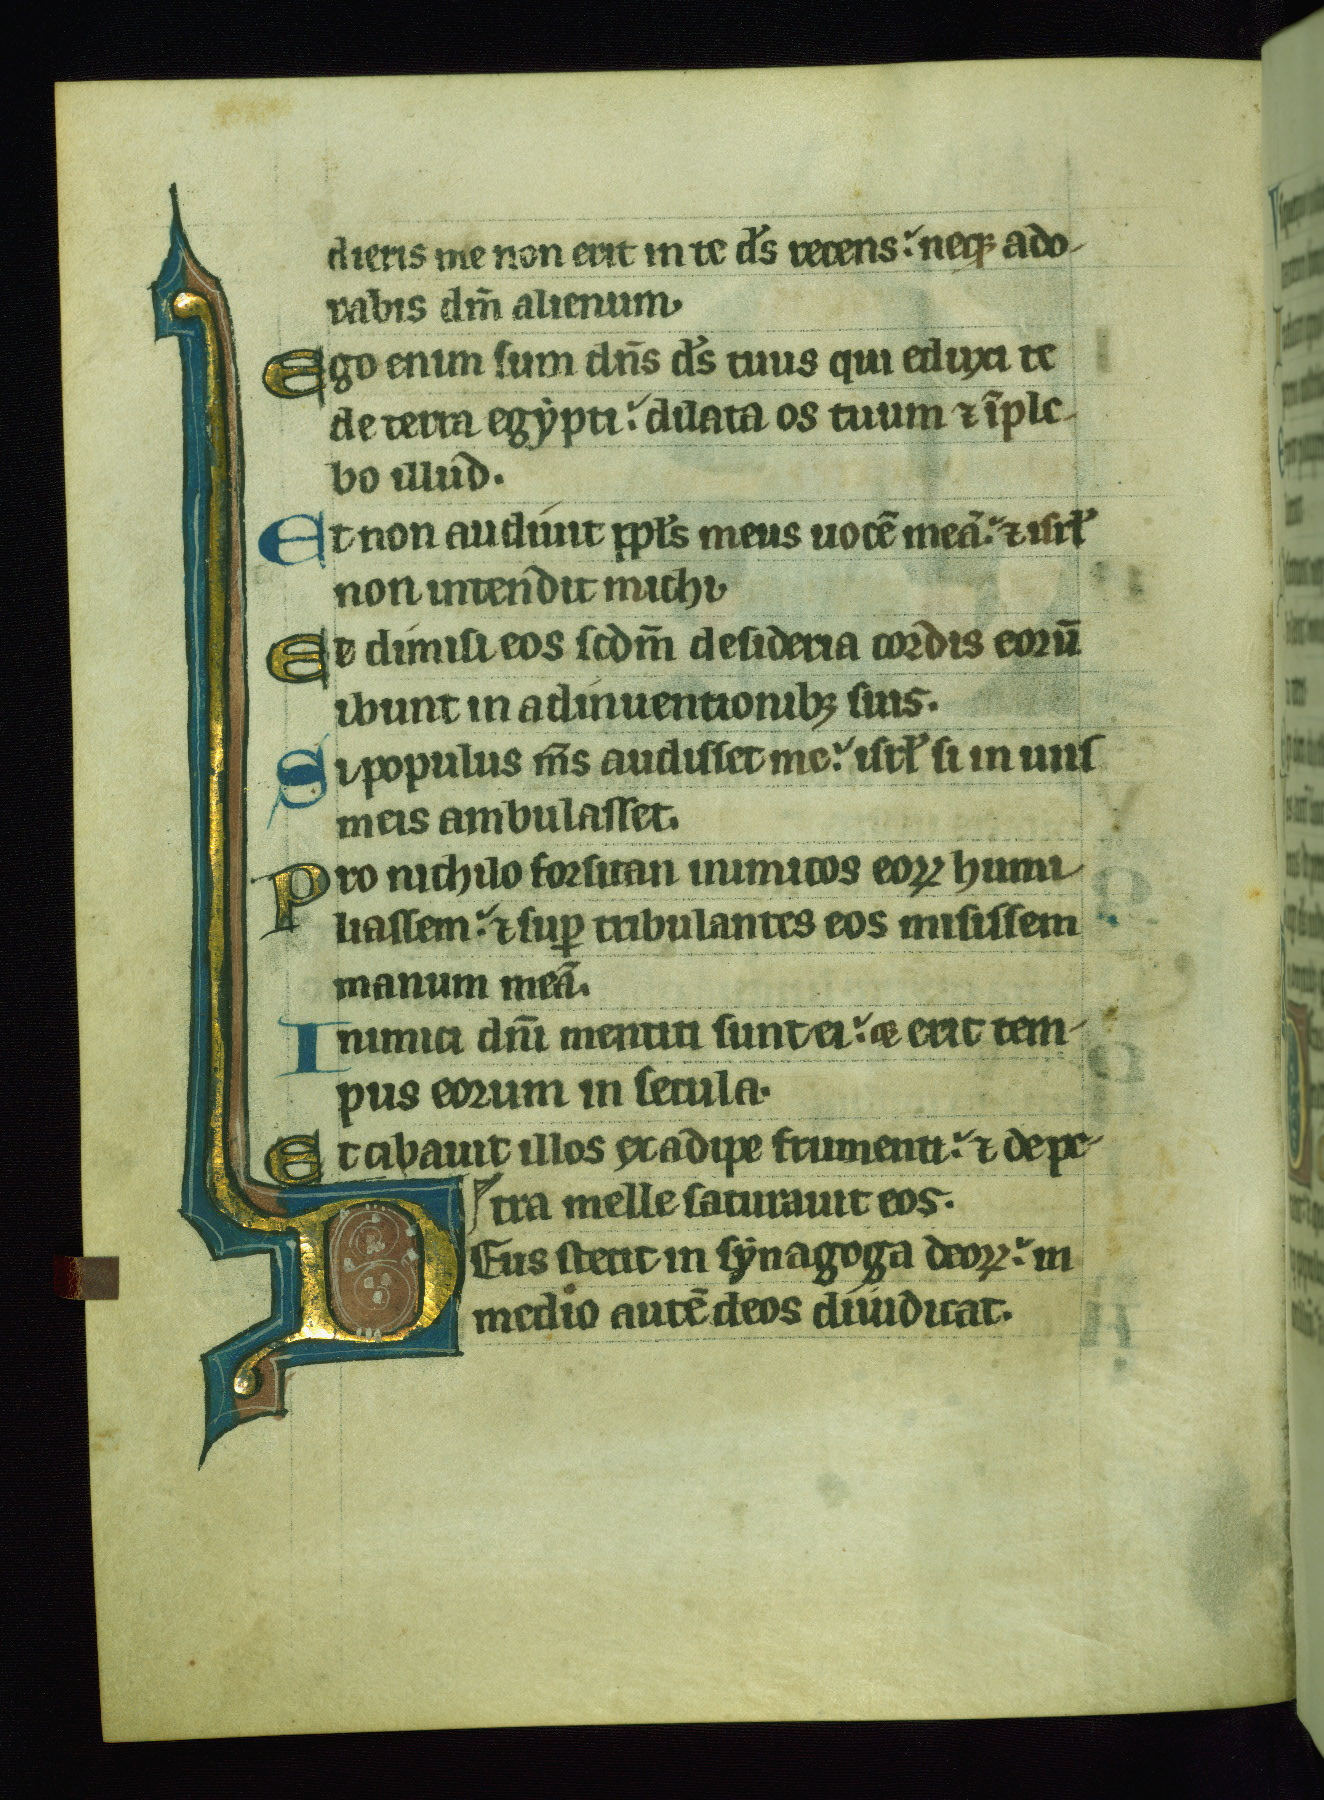 dieris me non erit in te d̄s recens: neq; ado-
rabis dm̄ alienum
Ego enim sum dn̄s d̄s tuus qui eduxi te
de terra egẏpti: dilata os tuum ⁊ īple-
bo illud.
Et non audiuit ppl̄s meus uocē meā: ⁊ isrl̄
non intendit michi
Et dimisi eos scdm̄ desideria cordis eorū
ibunt in adinuentionib; suis.
Si populus m̄s audisset me: isrl̄ si in uiis
meis ambulasset.
Pro nichilo forsitan inimicos eoꝝ humi-
liassem: ⁊ suꝑ tribulantes eos misissem
manum meā.
Inimici dn̄i mentiti sunt ei: ⁊ erit tem-
pus eorum in secula.
Et cibauit illos ex adipe frumenti: ⁊ de pe-
tra melle saturauit eos.
DEus stetit in sẏnagoga deoꝝ: in
medio autē deos diiudicat.